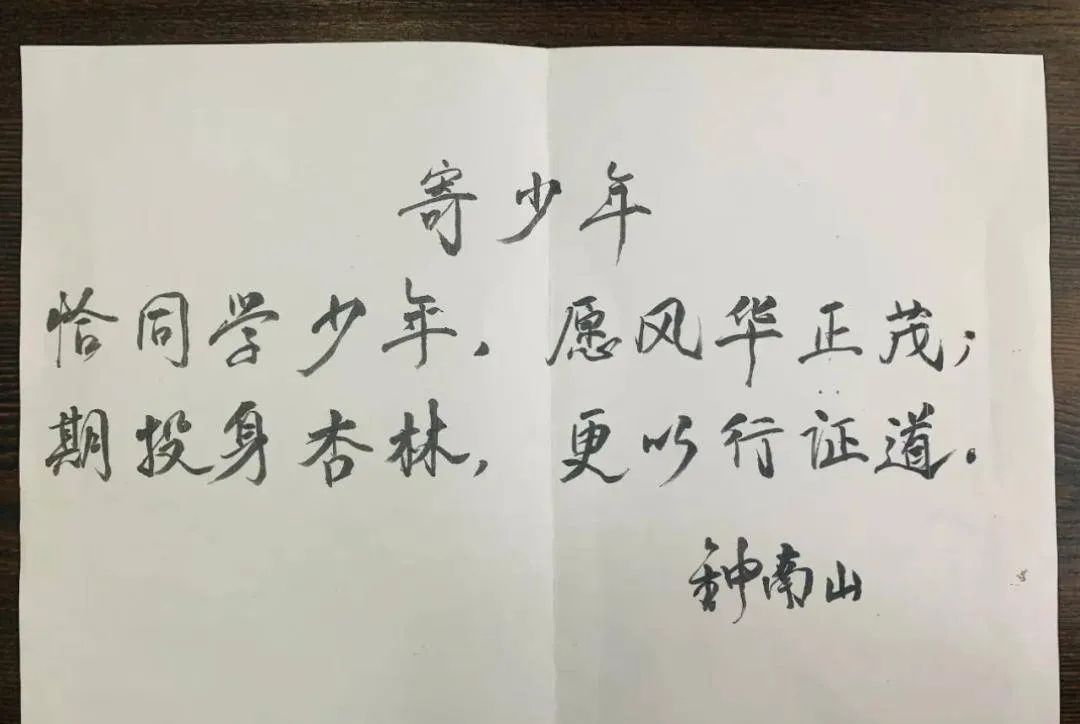 寄少年
恰同学少年,愿风华正茂;
期投身杏林,更以行证道.
钟南山